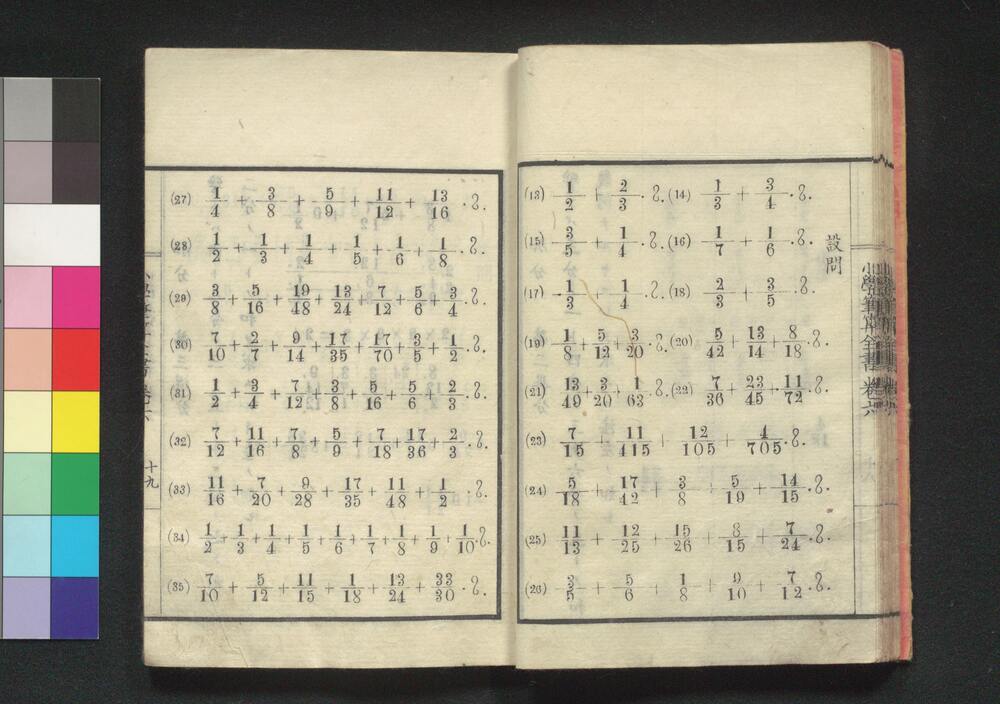 小學筆算全書 卷六
設問
(13) 1/2 + 2/3 . ?. (14) 1/3 + 3/4 . ?.
(15) 3/5 + 1/4 . ?. (16) 1/7 + 1/6 . ?.
(17) 1/3 + 1/4 . ?. (18) 2/3 + 3/5 . ?.
(19) 1/8 + 5/12 + 3/20 . ?. (20) 5/42 + 13/14 + 8/18 . ?.
(21) 13/49 + 3/20 + 1/63 . ?. (22) 7/36 + 23/45 + 11/72 . ?.
(23) 7/15 + 11/415 + 12/105 + 4/705 . ?.
(24) 5/18 + 17/42 + 3/8 + 5/19 + 14/15 . ?.
(25) 11/13 + 12/25 + 15/26 + 8/15 + 7/24 . ?.
(26) 3/5 + 5/6 + 1/8 + 9/10 + 7/12 . ?.
(27) 1/4 + 3/8 + 5/9 + 11/12 + 13/16 . ?.
(28) 1/2 + 1/3 + 1/4 + 1/5 + 1/6 + 1/8 . ?.
(29) 3/8 + 5/16 + 19/48 + 13/24 + 7/12 + 5/6 + 3/4 . ?.
(30) 7/10 + 2/7 + 9/14 + 17/35 + 17/70 + 3/5 + 1/2 . ?.
(31) 1/2 + 3/4 + 7/12 + 3/8 + 5/16 + 5/6 + 2/3 . ?.
(32) 7/12 + 11/16 + 7/8 + 5/9 + 7/18 + 17/36 + 2/3 . ?.
(33) 11/16 + 7/20 + 9/28 + 17/35 + 11/48 + 1/2 . ?.
(34) 1/2 + 1/3 + 1/4 + 1/5 + 1/6 + 1/7 + 1/8 + 1/9 + 1/10 . ?.
(35) 7/10 + 5/12 + 11/15 + 1/18 + 13/24 + 33/30 . ?.
十九